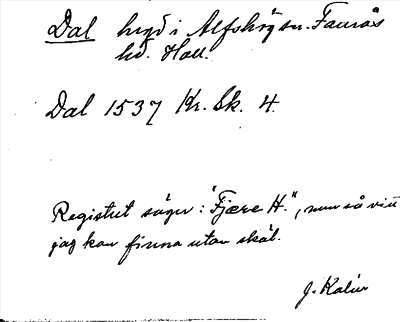 Dal bygd i Alfshögs sn. Faurås
hd. Hall.
Dal 1537 Kr. Sk. 4.
Registret säger: "Fjære H.", men så vitt
jag kan finna utan skäl.
J. Kalén